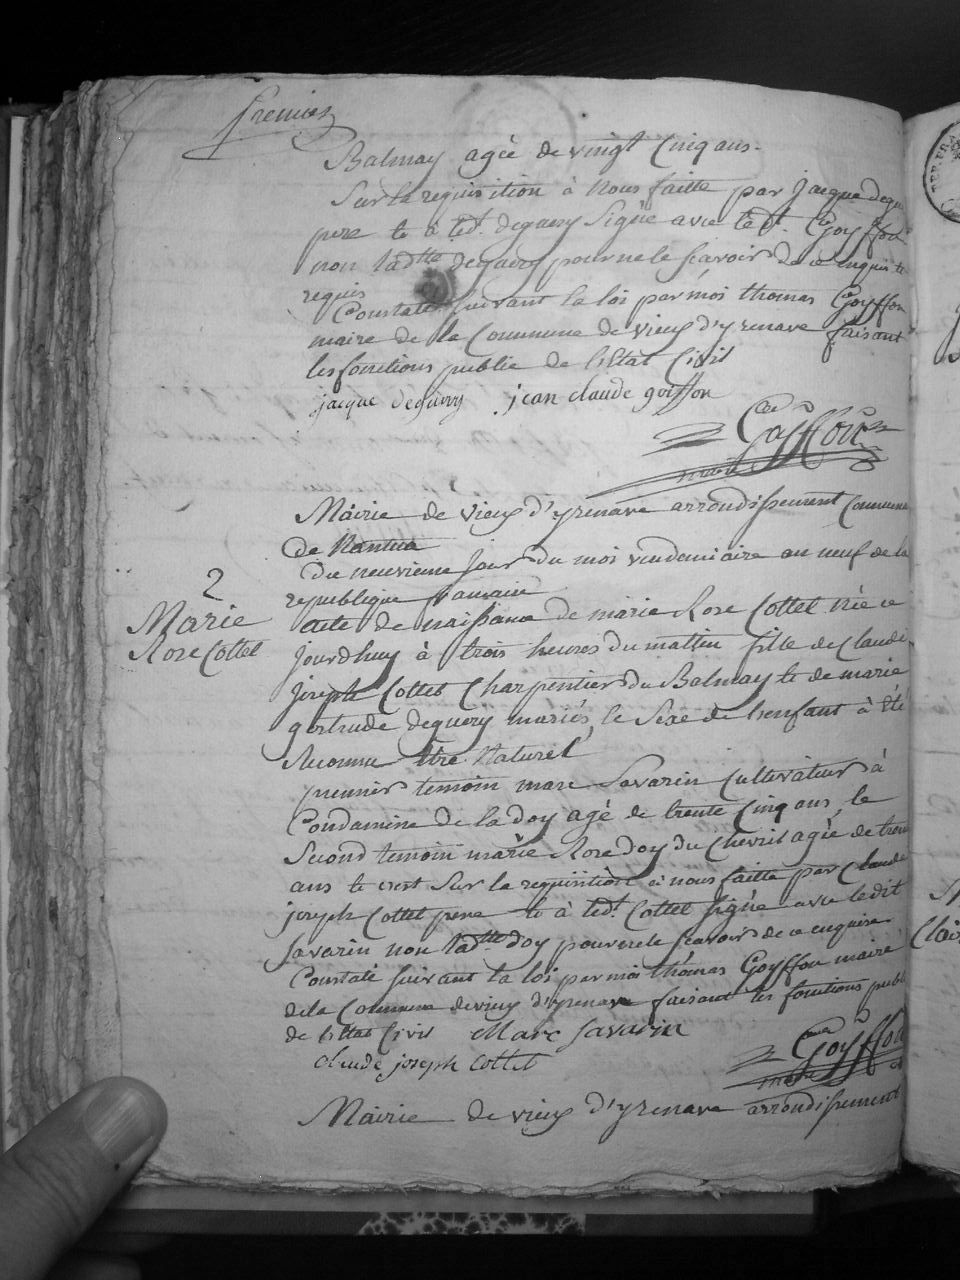 premier
Balmay agée de vingt Cinq ans -
Sur la requisition à Nous faitte par Jacque degu
pere te a ledt. deguery Signé avec le dt. Goyffon
non ladtte deguery pour ne le scavoir de ce enquis te
requis
Constaté suivant la loi par moi thomas Goyffon
maire de la Commune de vieux d'yzenave faisant
les fonctions public de l'Etat Civil
jacque deguerry jean claude goiffon
Goyffon
maire
Mairie de vieux d'yzenave arrondissement Commune
de Nantua
Du neuvieme Jour du moi vendemiaire an neuf de la
republique francaise
2
Marie
Rose Cottet
acte de naissance de marie Rose Cottet née ce
Jourdhuy à trois heures du mattin fille de Claude
Joseph Cottet Charpentier du Balmay te de marie
gertrude deguery mariés, le Sexe de l'enfant à été
Reconnu être Naturel
premier temoin marc Savarin Cultivateur à
Condamine de la doy agé de trente Cinq ans, le
Second temoin marie Rose doy du Chevril agée de trente
ans te crest Sur la requisition à nous faitte par Claude
joseph Cottet pere te à ledt. Cottet signé avec ledit
Savarin non ladtte doy pour ne le scavoir de ce enquise
Constaté suivant la loi par moi thomas Goyffon maire
de la Commune de vieux d'yzenave faisant les fonctions publi
de l'Etat Civil Marc Savarin
claude joseph Cottet
Goyffon
maire
Mairie de vieux d'yzenave arrondissement
Clair